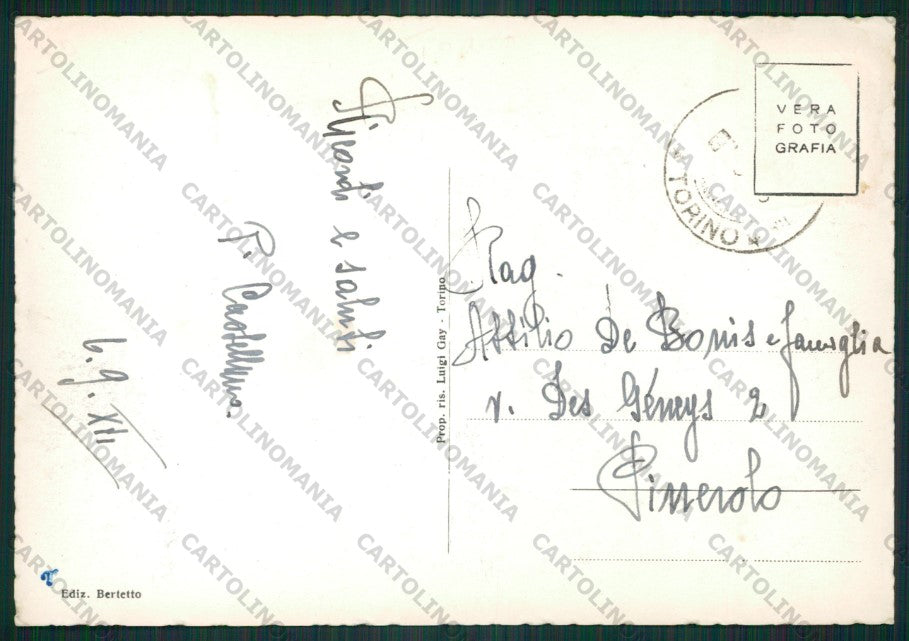 Ricordi e saluti
P. Castellano.
6. 9. XII
Ediz. Bertetto
Prop. ris. Luigi Gay - Torino
VERA
FOTO
GRAFIA
TORINO
Rag.
Attilio De Bonis e famiglia
v. Des Géneys 2
Pinerolo
CARTOLINOMANIA